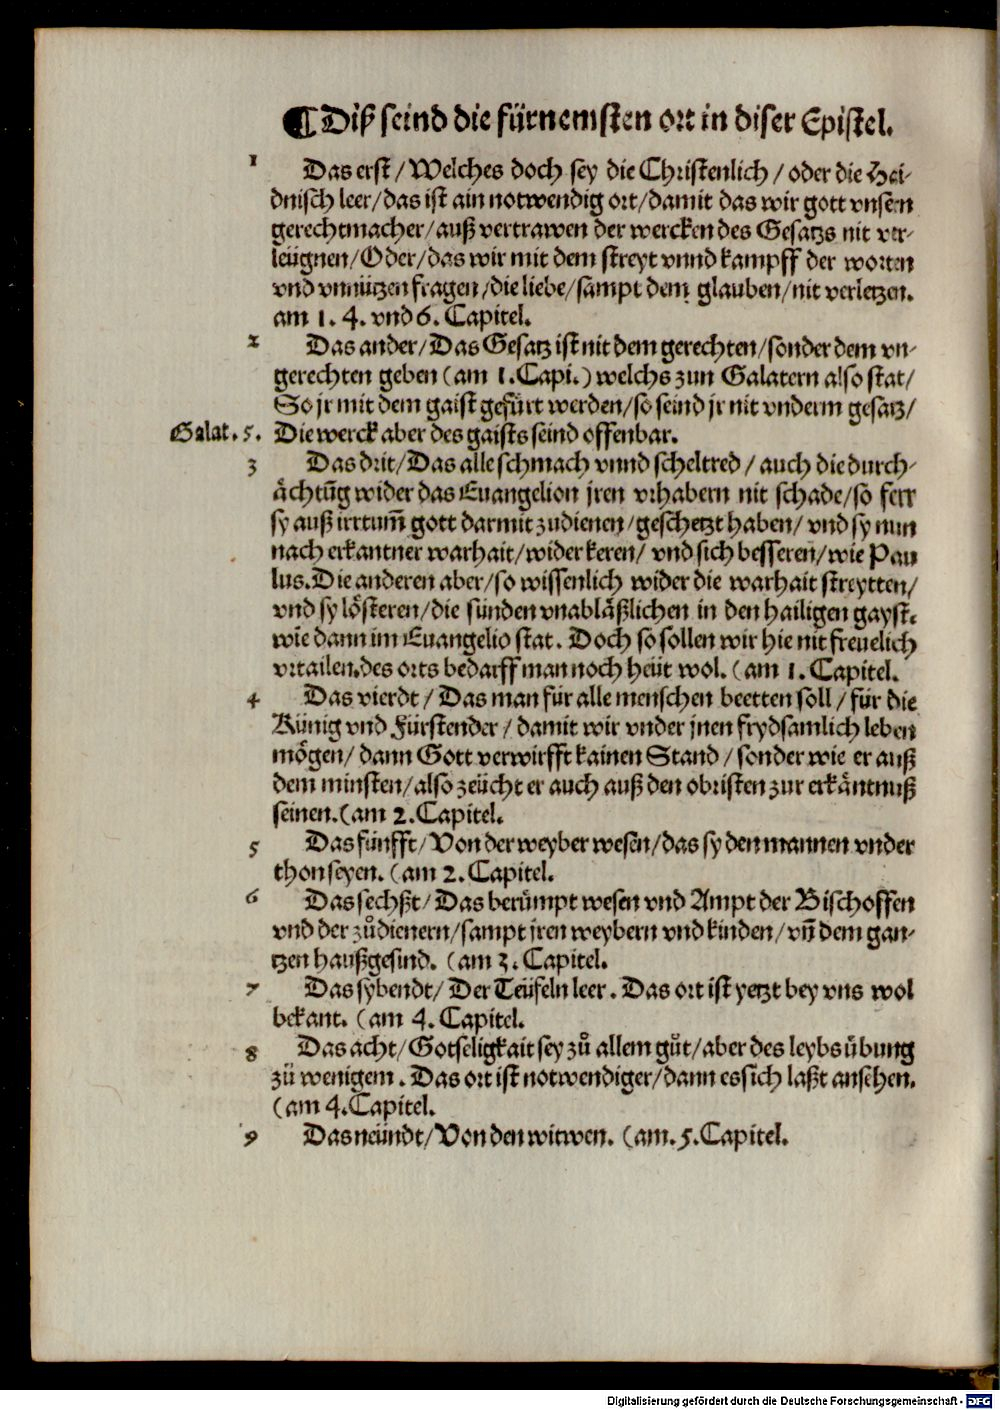 ¶ Diß seind die fürnemsten ort in diser Epistel.
1 Das erst / Welches doch sey die Christenlich / oder die Hai-
dnisch leer / das ist ain notwendig ort / damit das wir gott vnsern
gerechtmacher / auß vertrawen der wercken des Gesatzs nit ver-
leügnen / Oder / das wir mit dem streyt vnnd kampff der worten
vnd vnnützen fragen / die liebe / sampt dem glauben / nit verletzen.
am 1. 4. vnd 6. Capitel.
2 Das ander / Das Gesatz ist nit dem gerechten / sonder dem vn-
gerechten geben (am 1. Capi.) welchs zun Galatern also stat /
So jr mit dem gaist gefürt werden / so seind jr nit vnderm gesatz /
Galat. 5. Die werck aber des gaists seind offenbar.
3 Das drit / Das alle schmach vnnd scheltred / auch die durch-
ächtũg wider das Euangelion jren vrhabern nit schade / so ferr
sy auß irrtum̃ gott darmit zudienen / geschetzt haben / vnd sy nun
nach erkantner warhait / wider keren / vnd sich besseren / wie Pau
lus. Die anderen aber / so wissenlich wider die warhait streytten /
vnd sy lösteren / die sünden vnabläßlichen in den hailigen gayst.
wie dann im Euangelio stat. Doch so sollen wir hie nit freuelich
vrtailen. des orts bedarff man noch heüt wol. (am 1. Capitel.
4 Das vierdt / Das man für alle menschen beetten soll / für die
Künig vnd Fürstender / damit wir vnder jnen frydsamlich leben
mögen / dann Gott verwirfft kainen Stand / sonder wie er auß
dem minsten / also zeücht er auch auß den obristen zur erkäntnuß
seinen. (am 2. Capitel.
5 Das fünfft / Von der weyber wesen / das sy den mannen vnder
thon seyen. (am 2. Capitel.
6 Das sechßt / Das berümpt wesen vnd Ampt der Bischoffen
vnd der zůdienern / sampt jren weybern vnd kinden / vñ dem gan-
tzen haußgesind. (am 3. Capitel.
7 Das sybendt / Der Teüfeln leer. Das ort ist yetzt bey vns wol
bekant. (am 4. Capitel.
8 Das acht / Gotseligkait sey zů allem gůt / aber des leybs übung
zů wenigem. Das ort ist notwendiger / dann es sich laßt ansehen.
(am 4. Capitel.
9 Das neündt / Von den witwen. (am. 5. Capitel.
Digitalisierung gefördert durch die Deutsche Forschungsgemeinschaft - DFG